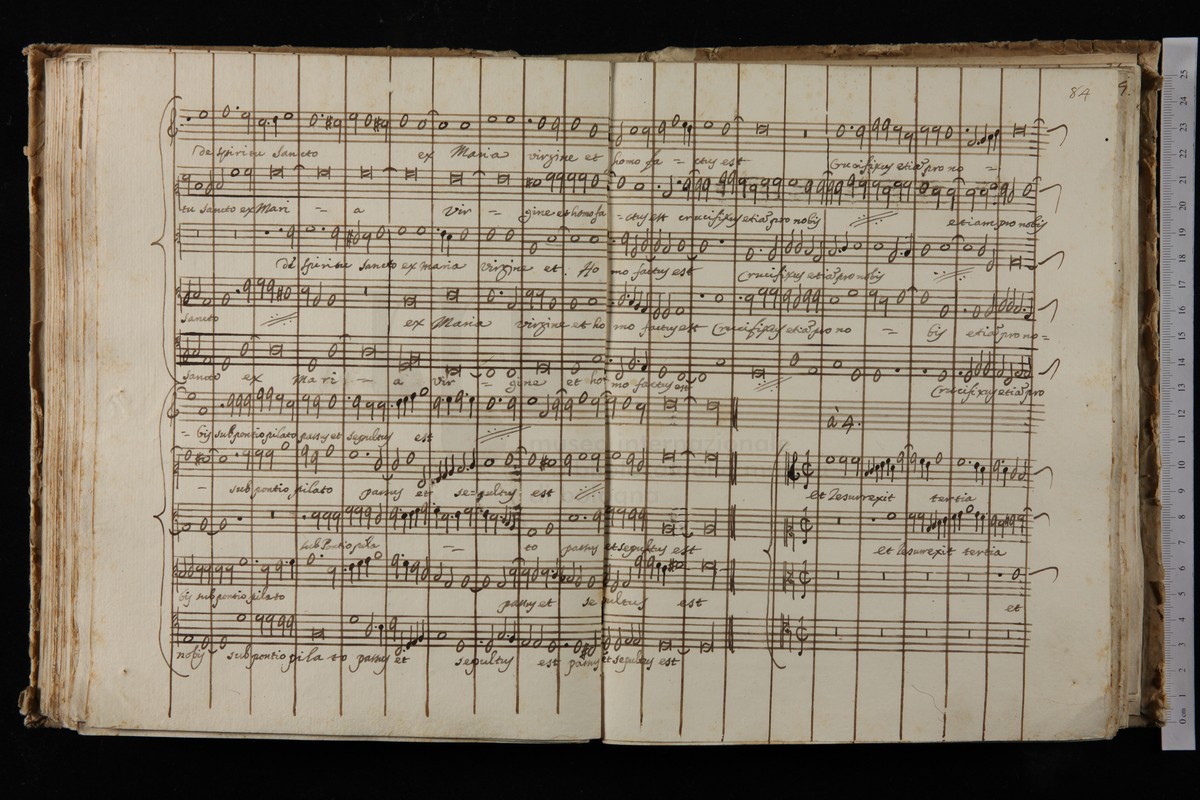 84
de spiritu sancto ex Maria virgine et homo fa = ctus est Crucifixus etiã pro no =
tu sancto ex Mari = a vir = gine et homo fa = ctus est crucifixus etiã pro nobis etiam pro nobis
de spiritu sancto ex maria virgine et Ho mo factus est Crucifixus etiã pro nobis
sancto ex Maria virgine et ho mo factus est Crucifixus etiã pro no = bis etiã pro no =
sancto ex Mari = a vir = gine et ho mo factus est Crucifixus etiã pro
= bis sub pontio pilato passus et sepultus est à 4.
= sub pontio pilato passus et se = pultus est et resurrexit tertia
sub Pontio pila = to passus et sepultus est et resurrexit tertia
bis sub pontio pilato passus et se pultus est et
nobis sub pontio pila to passus et sepultus est passus et sepultus est
museo internazionale